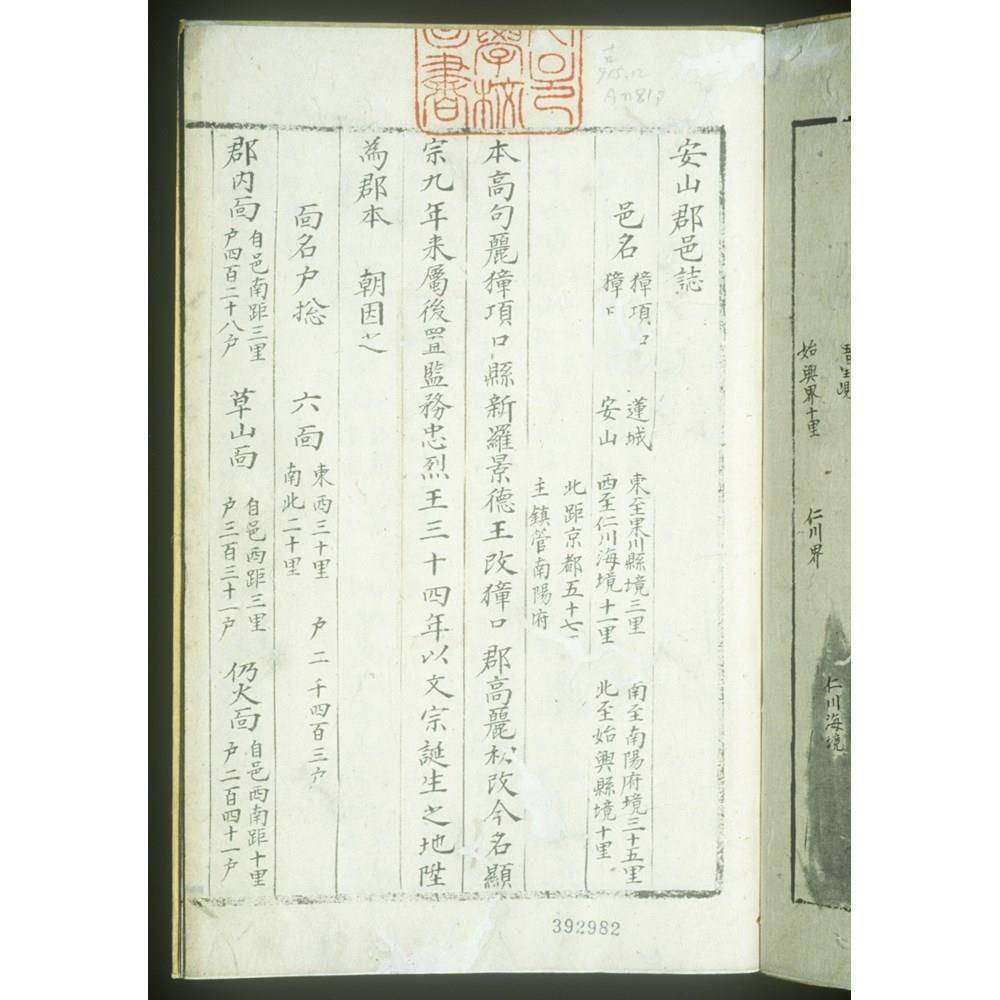 安山郡邑誌
邑名
獐項口
獐口
蓮城
安山
東至果川縣境三里
西至仁川海境十一里
南至南陽府境三十五里
北至始興縣境十里
北距京都五十七
主鎮管南陽府
本高句麗獐項口縣新羅景德王改獐口郡高麗初改今名顯
宗九年来屬後置監務忠烈王三十四年以文宗誕生之地陞
為郡本 朝因之
面名户総 六面
東西三十里
南北二十里
户二千四百三户
郡内面
自邑南距三里
户四百二十八户
草山面
自邑西距三里
户三百三十一户
仍火面
自邑西南距十里
户二百四十一户
始興界十里
仁川界
仁川海境
學校
書
392982